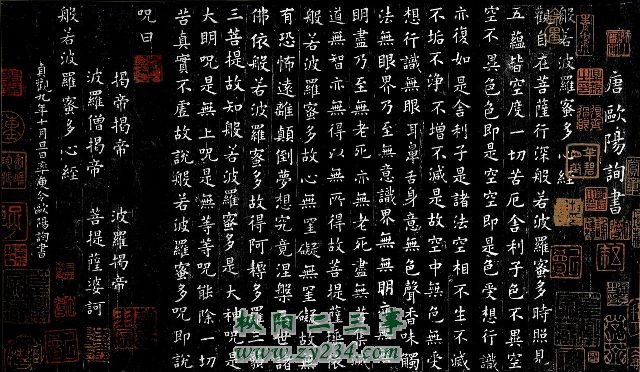 唐歐陽詢書
般若波羅蜜多心經
觀自在菩薩行深般若波羅蜜多時照見
五蘊皆空度一切苦厄舍利子色不異空
空不異色色即是空空即是色受想行識
亦復如是舍利子是諸法空相不生不滅
不垢不淨不增不減是故空中無色無受
想行識無眼耳鼻舌身意無色聲香味觸
法無眼界乃至無意識界無無明亦無無
明盡乃至無老死亦無老死盡無苦集滅
道無智亦無得以無所得故菩提薩埵依
般若波羅蜜多故心無罣礙無罣礙故無
有恐怖遠離顛倒夢想究竟涅槃三世諸
佛依般若波羅蜜多故得阿耨多羅三藐
三菩提故知般若波羅蜜多是大神呪是
大明呪是無上呪是無等等呪能除一切
苦真實不虛故說般若波羅蜜多呪即說
呪曰
揭帝揭帝 波羅揭帝
波羅僧揭帝 菩提薩婆訶
般若波羅蜜多心經
貞觀九年十月旦日率更令歐陽詢書
枞阳二三事
www.zy234.com